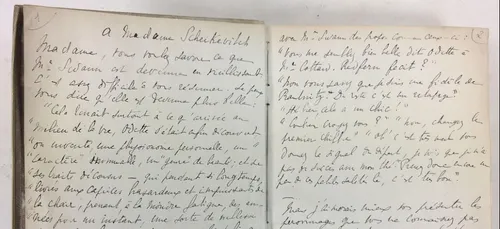 A Madame Scheikévitch
Madame, vous voulez savoir ce que
Mme Swann est devenue en vieillissant.
C'est assez difficile à vous résumer. Je peux
vous dire qu'elle est devenue plus belle :
"Cela tenait surtout à ce qu'arrivée au
"milieu de la vie, Odette s'était enfin découvert
"ou inventé, une physionomie personnelle, un
"caractère immuable, un "genre de beauté", et sur
"ses traits décousus — qui pendant si longtemps,
"livrés aux caprices hasardeux et impuissants de
"la chair, prenant à la moindre fatigue, des
"nées pour un instant, une sorte de vieillesse
avec Mme Swann du propos comme ceux-ci :
"Vous me semblez bien belle dit Odette à
Mme Cottard. Redfern fecit ?"
"Non vous savez que je suis une fidèle de
Raudnitz. Du reste c'est un retapage"
"Hé bien, cela a un chic !"
"Combien croyez vous ?" "non, changez le
premier chiffre"
donnez le signal du départ, je vois que je n'ai
pas de succès avec mon thé. Prenez donc encore un
peu de ces petites saletés là, c'est très bon."
Mais j'aimerais mieux vous présenter les
personnages que vous ne connaissez pas